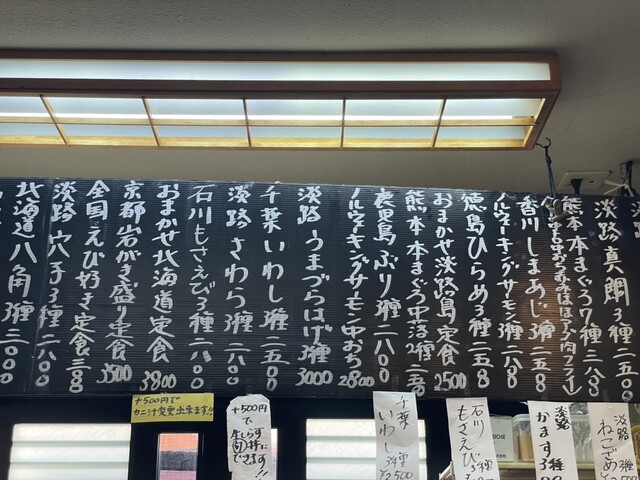 淡路真鯛3種二五〇〇
熊本本まぐろ7種三八〇〇
香川しまあじ3種二五八〇
ノルウェーキングサーモン3種二八〇〇
徳島ひらめ3種二五〇八
おまかせ淡路島定食2500
熊本本まぐろ中落2種二五〇〇
鹿児島ぶり3種二八〇〇
ノルウェーキングサーモン中おち2800
淡路うまづらはげ3種3000
千葉いわし3種二五〇〇
淡路さわら3種二八〇〇
石川もさえび3種二五〇〇
おまかせ北海道定食3800
京都岩がき盛り定食3500
全国えび好き定食三八〇
淡路穴子3種二八〇〇
北海道八角3種三〇〇〇
+500円で
カニ汁変更出来ます!!
+500円で
生しらす丼に
できます!!
千葉
いわし3種
¥2500
石川
もさえび3種
淡路
かます3種
淡路
ねこざめ